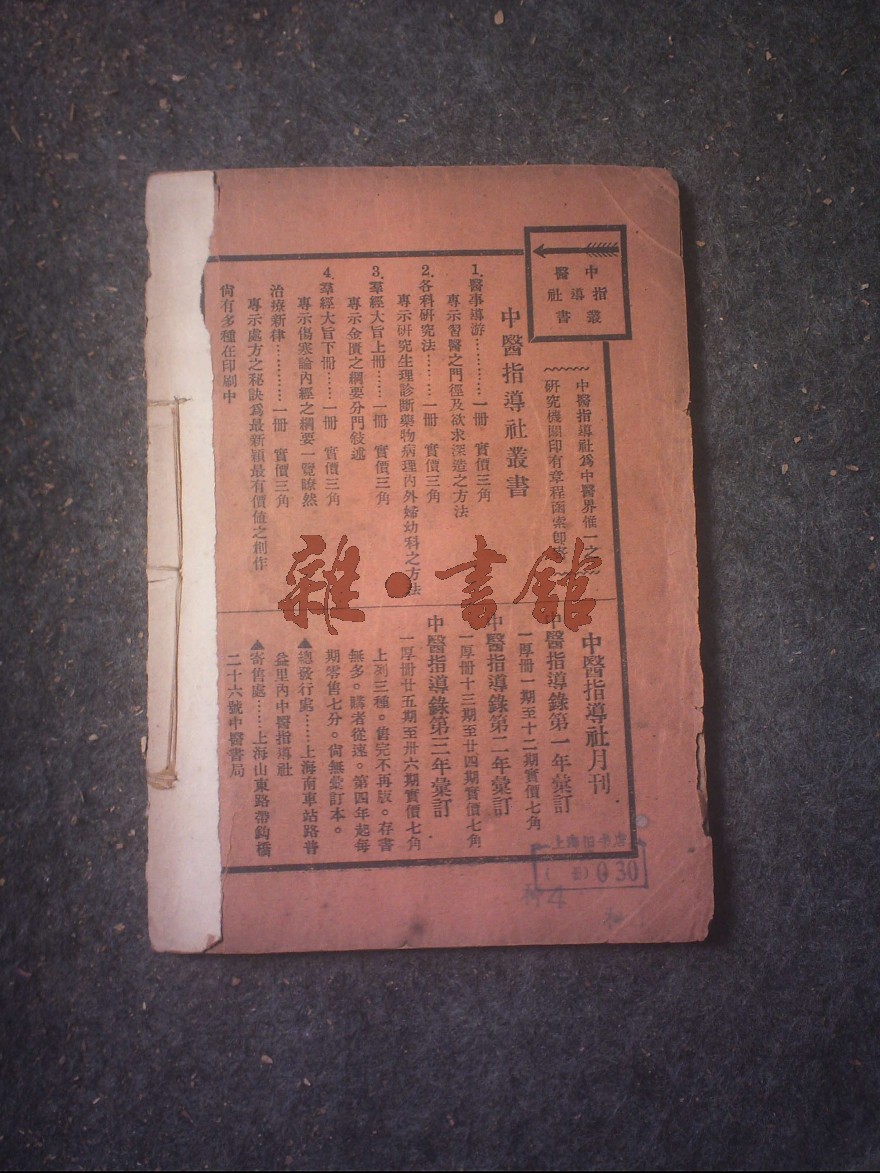 中醫
指導社
叢書
中醫指導社爲中醫界惟一之
研究機關印有章程函索卽寄
中醫指導社叢書
1.醫事導游…………一冊 實價三角
專示習醫之門徑及欲求深造之方法
2.各科研究法………一冊 實價三角
專示研究生理診斷藥物病理內外婦幼科之方法
3.羣經大旨上冊……一冊 實價三角
專示金匱之綱要分門敍述
4.羣經大旨下冊……一冊 實價三角
專示傷寒論內經之綱要一覽瞭然
治療新律…………一冊 實價三角
專示處方之秘訣爲最新穎最有價值之創作
尙有多種在印刷中
中醫指導社月刊
中醫指導錄第一年彙訂
一厚冊一期至十二期實價七角
中醫指導錄第二年彙訂
一厚冊十三期至廿四期實價七角
中醫指導錄第三年彙訂
一厚冊廿五期至卅六期實價七角
上列三種。售完不再版。存書
無多。購者從速。第四年起每
期零售七分。尙無彙訂本。
▲總發行處……上海南車站路普
益里內中醫指導社
▲寄售處……上海山東路帶鈎橋
二十六號中醫書局
雜·書館
上海旧书店
0 30
4